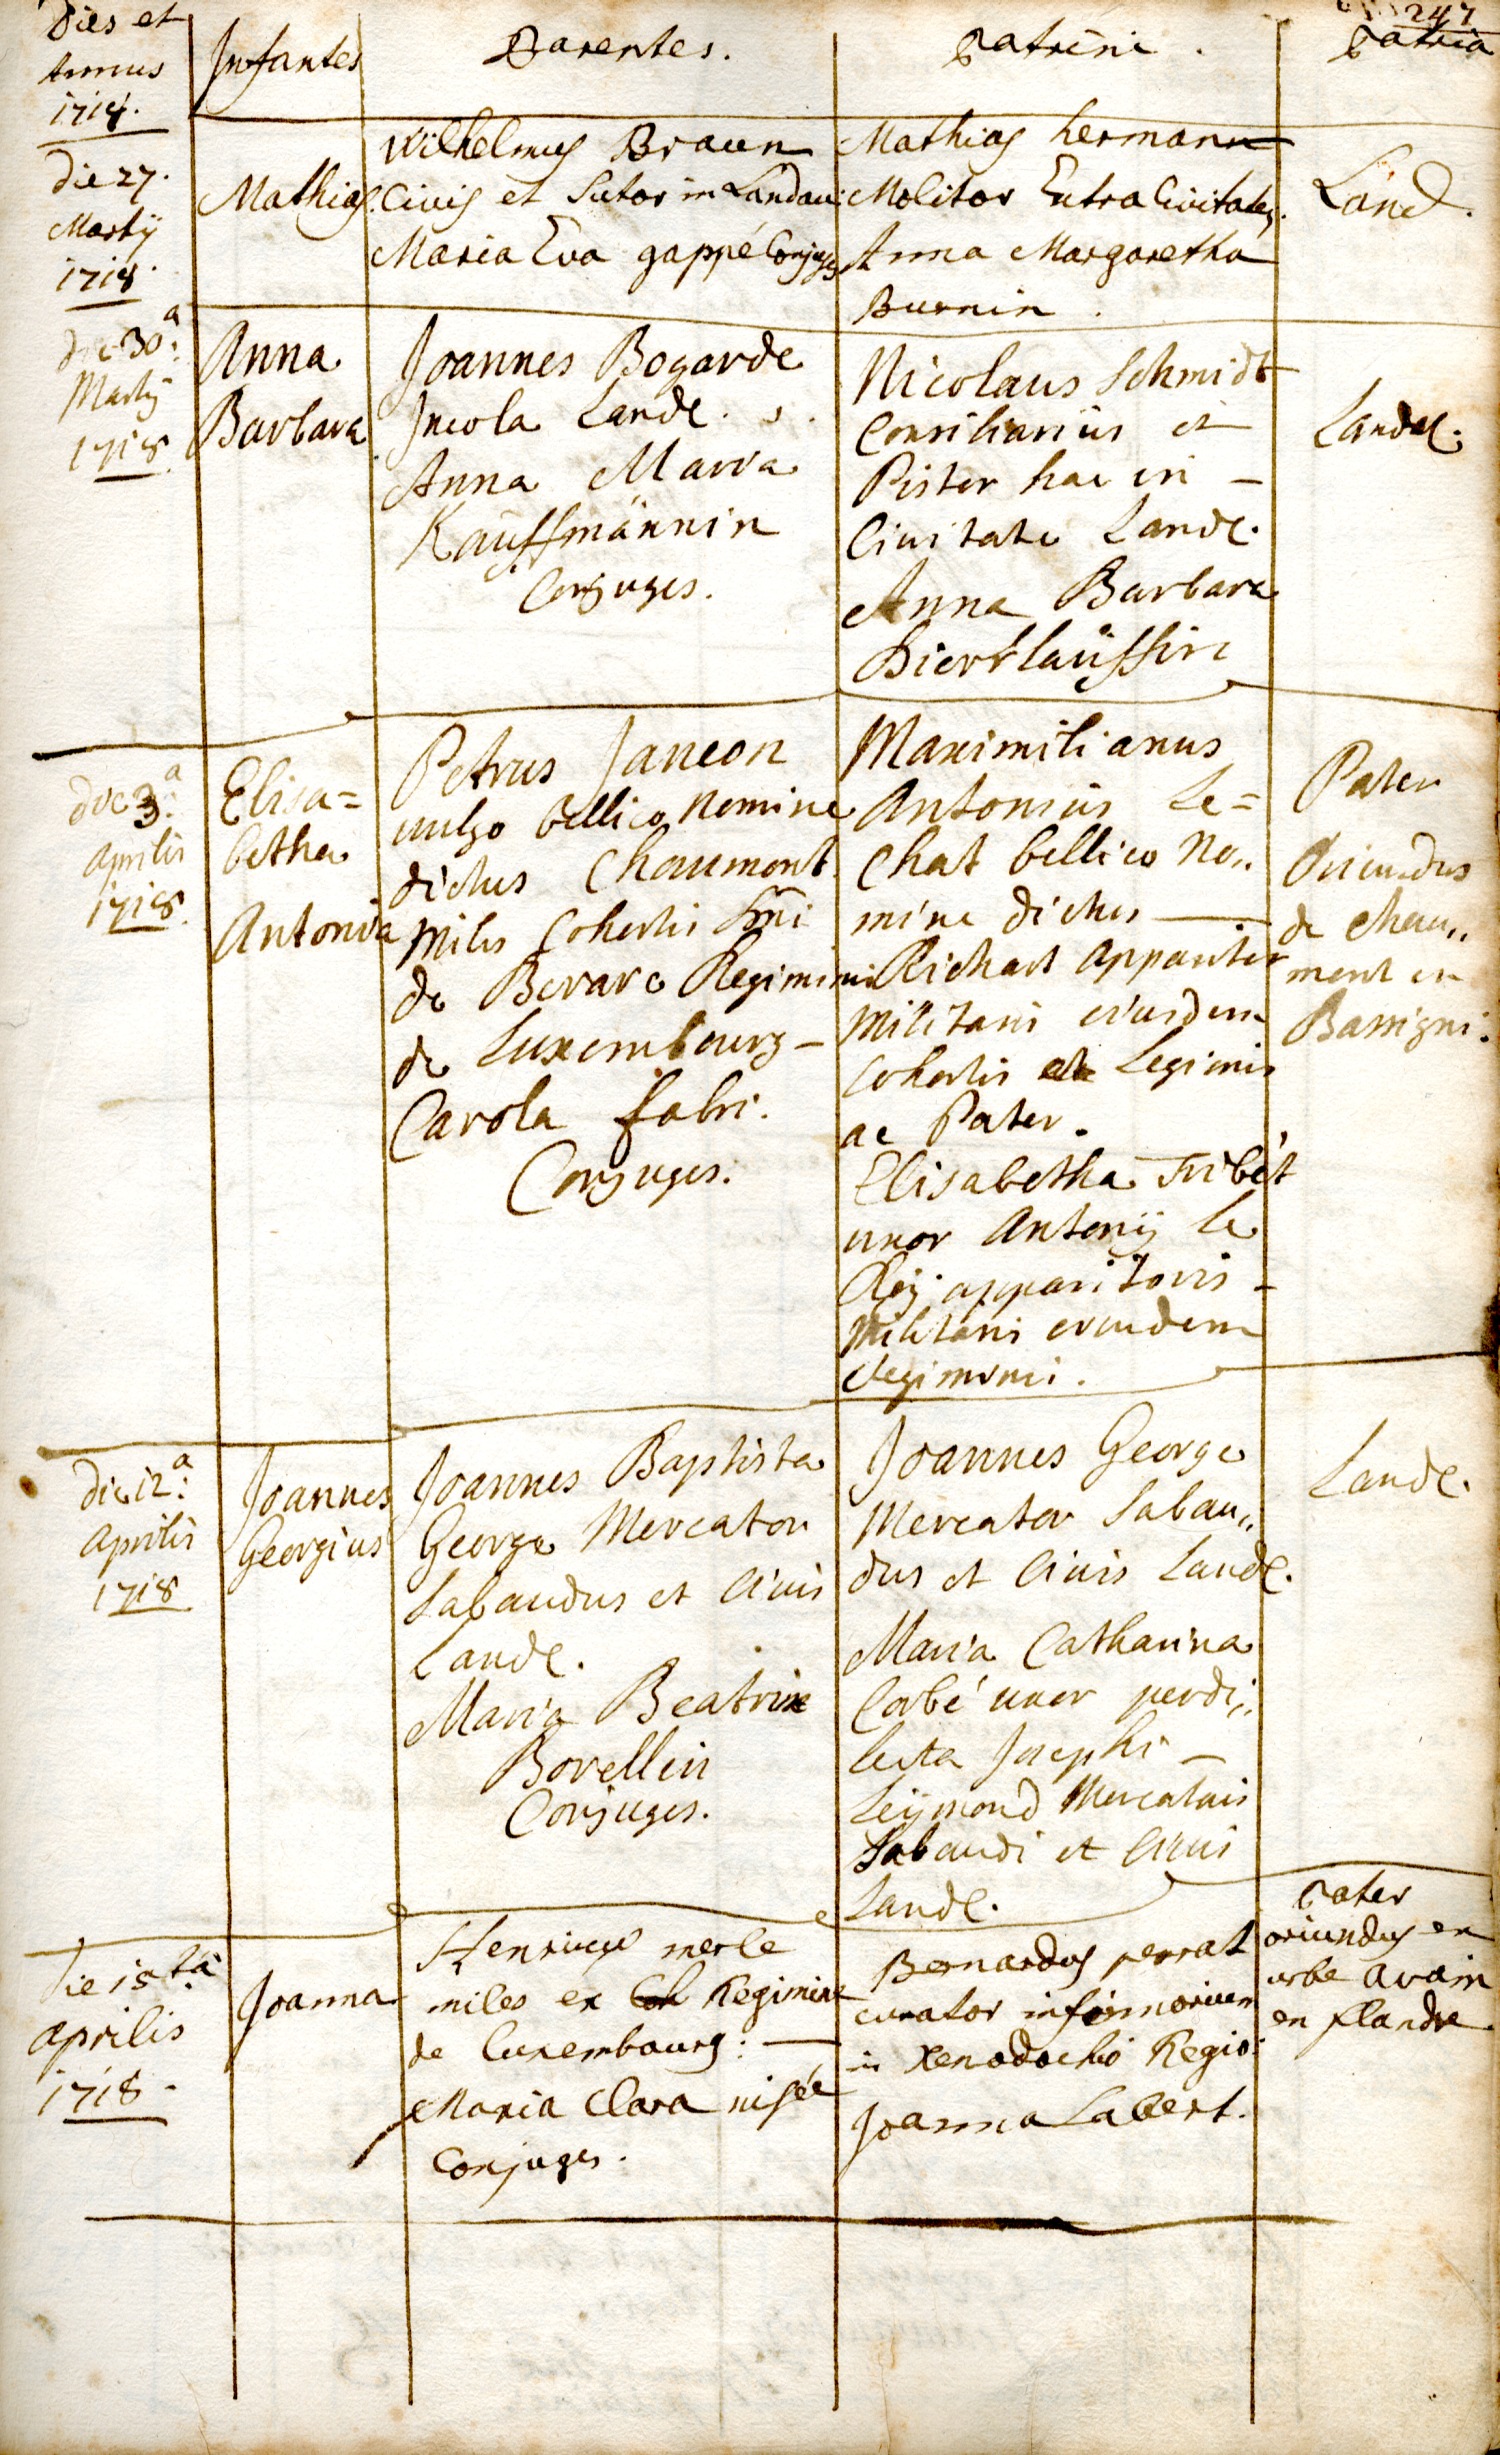 247
Dies et
Annus
1718.
Infantes
Parentes.
Patrini.
Patria
die 27.
Martÿ
1718.
Mathias.
Wilhelmus Braun
Civis et Sutor in Landau:
Maria Eva gappé Conjuges
Mathias hermann
Molitor Extra Civitatem.
Anna Margaretha
Burnin.
Land.
die 30a:
Martÿ
1718.
Anna
Barbara
Joannes Bogarde
Incola Lande.
Anna Maria
Kauffmännin
Conjuges.
Nicolaus Schmidt
Consiliarius et
Pistor hac in –
Civitate Lande.
Anna Barbara
Landae.
die 3a:
Aprilis
1718.
Elisa=
betha
Antonia
Petrus Jancon
vulgo bellico nomine
dictus Chaumont
Miles Cohortis Dni
de Regimini
de Luxembourg –
Carola fabri.
Conjuges.
Maximilianus
Antonius Le=
Chat bellico No,,
mine dictus —
Richart Apparitor
Militaris eiusdem
Cohortis Legionis
ac Pater.
Elisabetha Tribét
uxor Antonÿ le
Roÿ apparitoris –
Militaris eiusdem
Regiminis.
Pater
Oriundus
de Chau,,
mont en
Bassigni.
die 12a:
Aprilis
1718
Joannes
Georgius
Joannes Baptista
George Mercator
Sabaudus et Civis
Lande.
Maria Beatrix
Borellin
Conjuges.
Joannes George
Mercator Sabau,,
dus et Civis Lande.
Maria Catharina
Corbé uxor perdi,,
lecta Josephi –
Leÿmond Mercatoris
Sabaudi et Civis
Lande.
Lande.
Die 15ta
aprilis
1718.
Joanna
Henricus merle
miles ex Regimine
de Luxembourg: —
Maria Clara
Conjuges.
Bernardus perrat
curator infirmorum
in Xenodochio Regio:
Joanna Labert.
Pater
oriundus ex
urbe avain
en flandre.